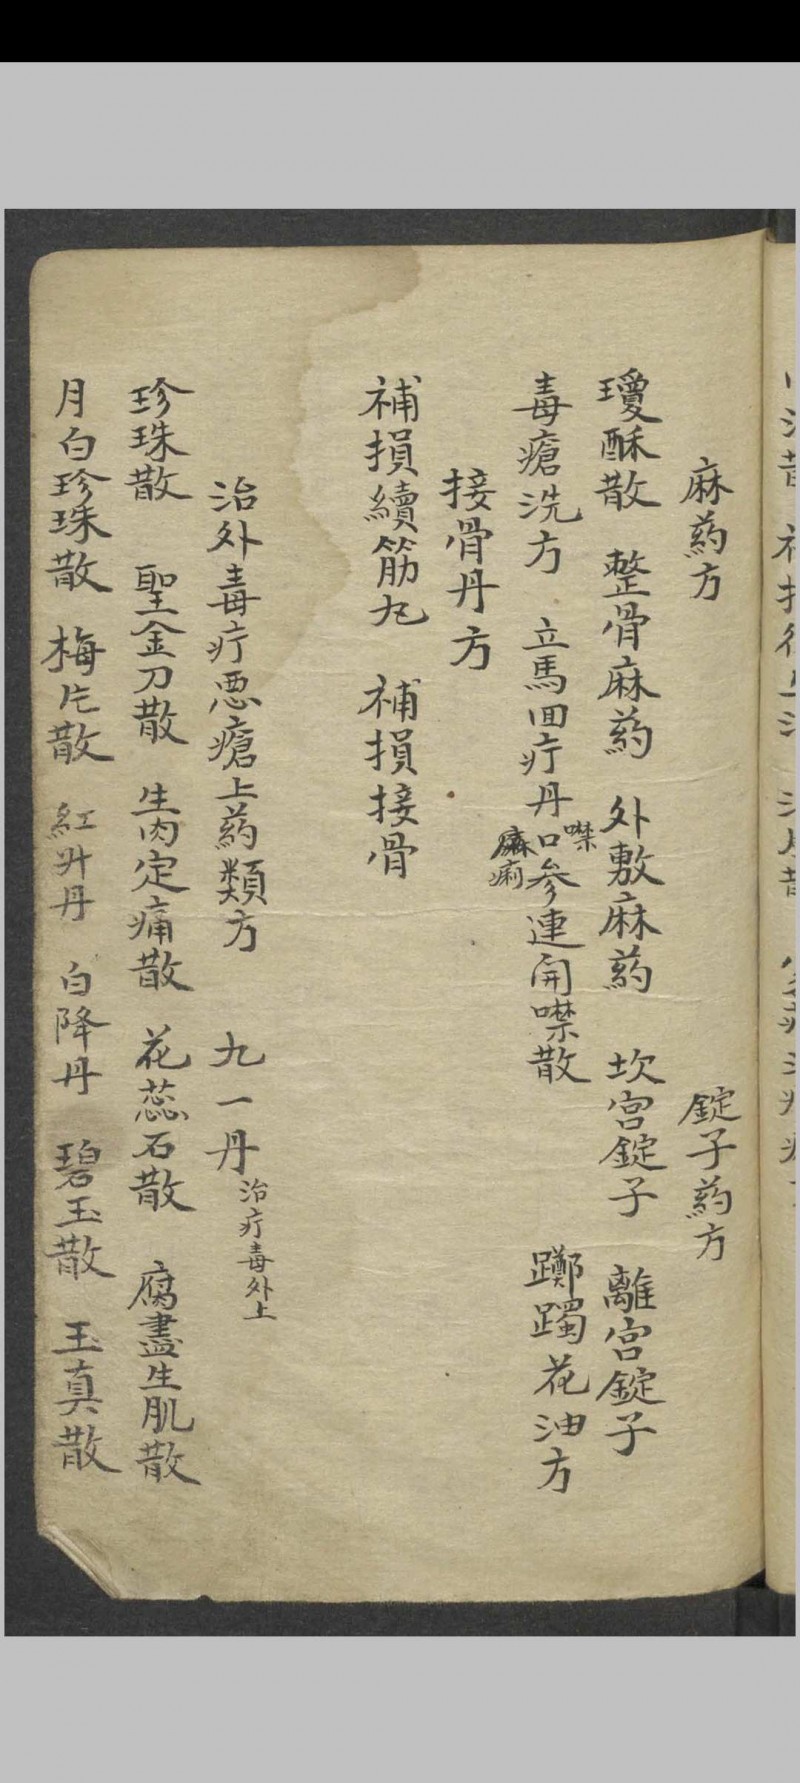 麻药方　錠子药方
瓊酥散　整骨麻药　外敷麻药　坎宫錠子　離宫錠子
毒瘡洗方　立馬回疔丹　噤口麻痢　参連開噤散　躑躅花油方
接骨丹方
補損續筋丸　補損接骨
治外毒疔悪瘡上药類方　九一丹治疔毒外上
珍珠散　聖金刀散　生肉定痛散　花蕊石散　腐盡生肌散
月白珍珠散　梅片散　紅升丹　白降丹　碧玉散　玉真散